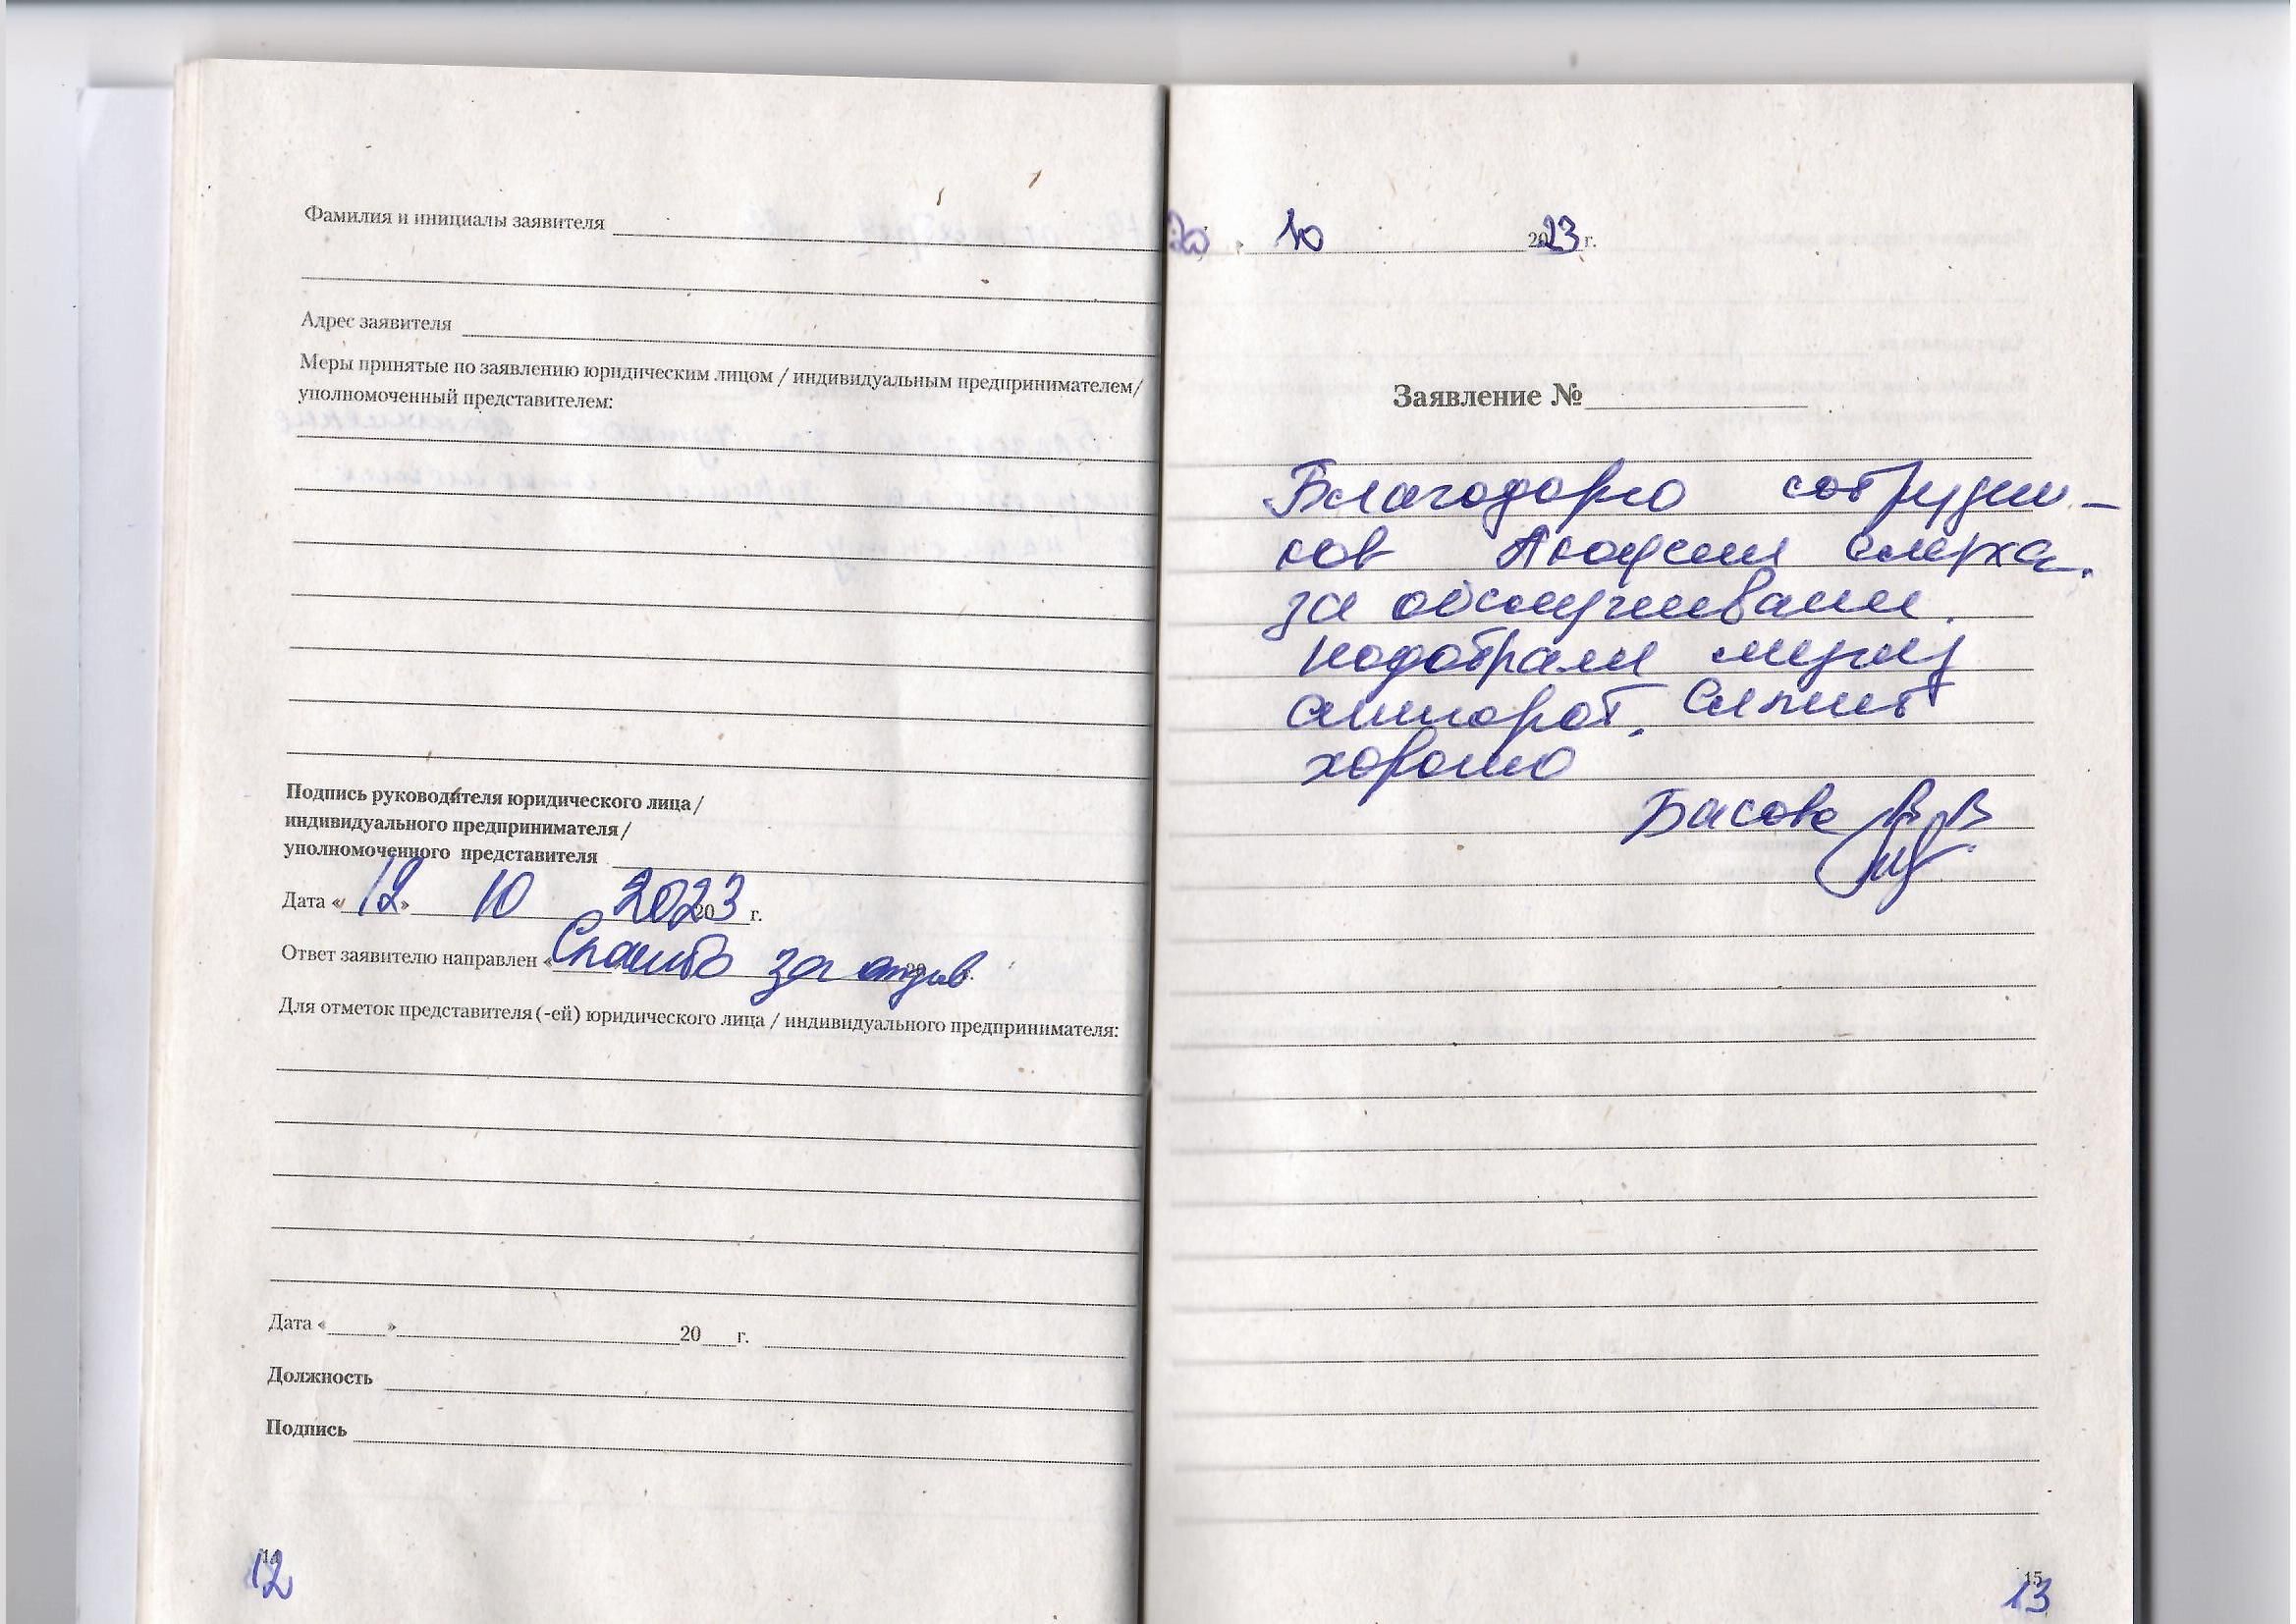 Фамилия и инициалы заявителя
Адрес заявителя
Меры принятые по заявлению юридическим лицом / индивидуальным предпринимателем/
уполномоченный представителем:
Подпись руководителя юридического лица /
индивидуального предпринимателя /
уполномоченного представителя
Дата «12» 10 2023 20 г.
Ответ заявителю направлен « Спасибо за отзыв
Для отметок представителя (-ей) юридического лица / индивидуального предпринимателя:
Дата «    » 20 г.
Должность
Подпись
12
20 10 2023 г.
Заявление №
Благодарю сотрудни-
ков Академии слуха.
за обслуживани.
подобрали мужу
аппарат. Слышит
хорошо
Басова В.В
15
13